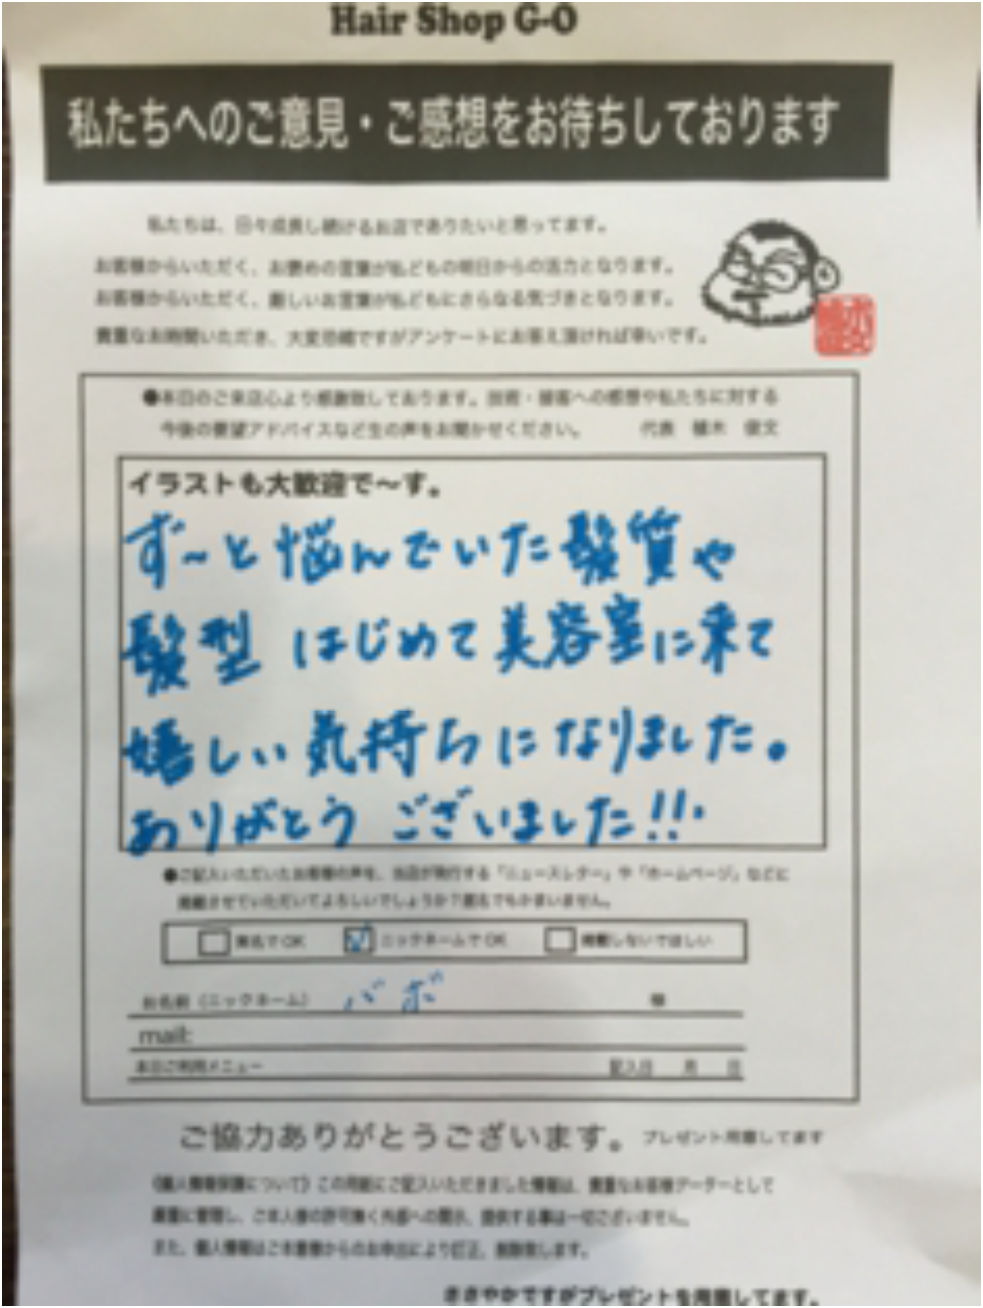 Hair Shop G-O
私たちへのご意見・ご感想をお待ちしております
私たちは、日々成長し続けるお店でありたいと思ってます。
お客様からいただく、お褒めの言葉が私どもの明日からの活力となります。
お客様からいただく、厳しいお言葉が私どもにさらなる気づきとなります。
貴重なお時間いただき、大変恐縮ですがアンケートにお答え頂ければ幸いです。
●本日のご来店心より感謝致しております。技術・接客への感想や私たちに対する
今後の要望アドバイスなど生の声をお聞かせください。 代表 植木 俊文
イラストも大歓迎で〜す。
ず〜と悩んでいた髪質や
髪型 はじめて美容室に来て
嬉しい気持ちになりました。
ありがとう ございました!!
●ご記入いただいたお客様の声を、当店が発行する「ニュースレター」や「ホームページ」などに
掲載させていただいてよろしいでしょうか?匿名でもかまいません。
実名でOK ニックネームでOK 掲載しないでほしい
お名前(ニックネーム) バボ 様
mail:
本日ご利用メニュー 記入日 月 日
ご協力ありがとうございます。 プレゼント用意してます
《個人情報保護について》この用紙にご記入いただきました情報は、貴重なお客様データーとして
厳重に管理し、ご本人様の許可無く外部への開示、提供する事は一切ございません。
また、個人情報はご本人様からのお申出により訂正、削除致します。
ささやかですがプレゼントを用意してます。